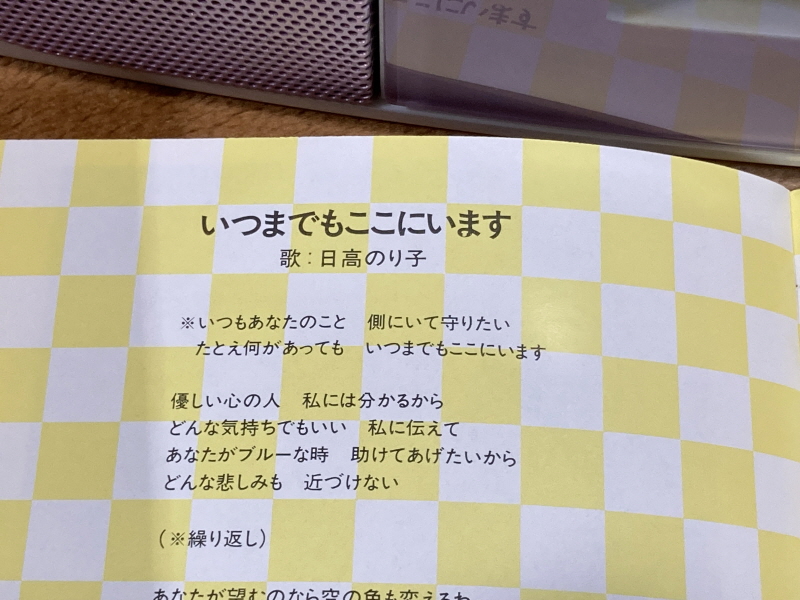 いつまでもここにいます
歌：日高のり子
※いつもあなたのこと　側にいて守りたい
たとえ何があっても　いつまでもここにいます
優しい心の人　私には分かるから
どんな気持ちでもいい　私に伝えて
あなたがブルーな時　助けてあげたいから
どんな悲しみも　近づけない
（※繰り返し）
あなたが望むのなら空の色も変えるわ